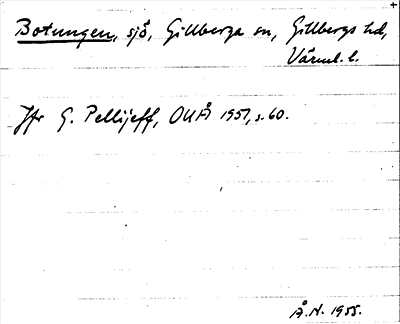 +
Botungen, sjö, Gillberga sn, Gillbergs hd,
Värml. l.
Jfr G. Pellijeff, OUÅ 1957, s. 60.
Å.N. 1955.